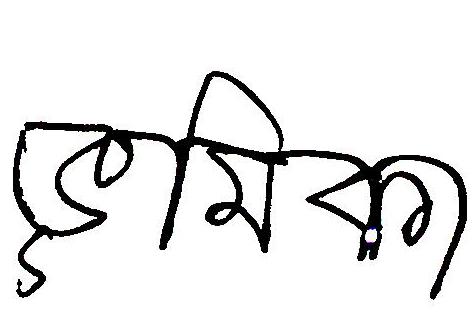 ভূমিকা